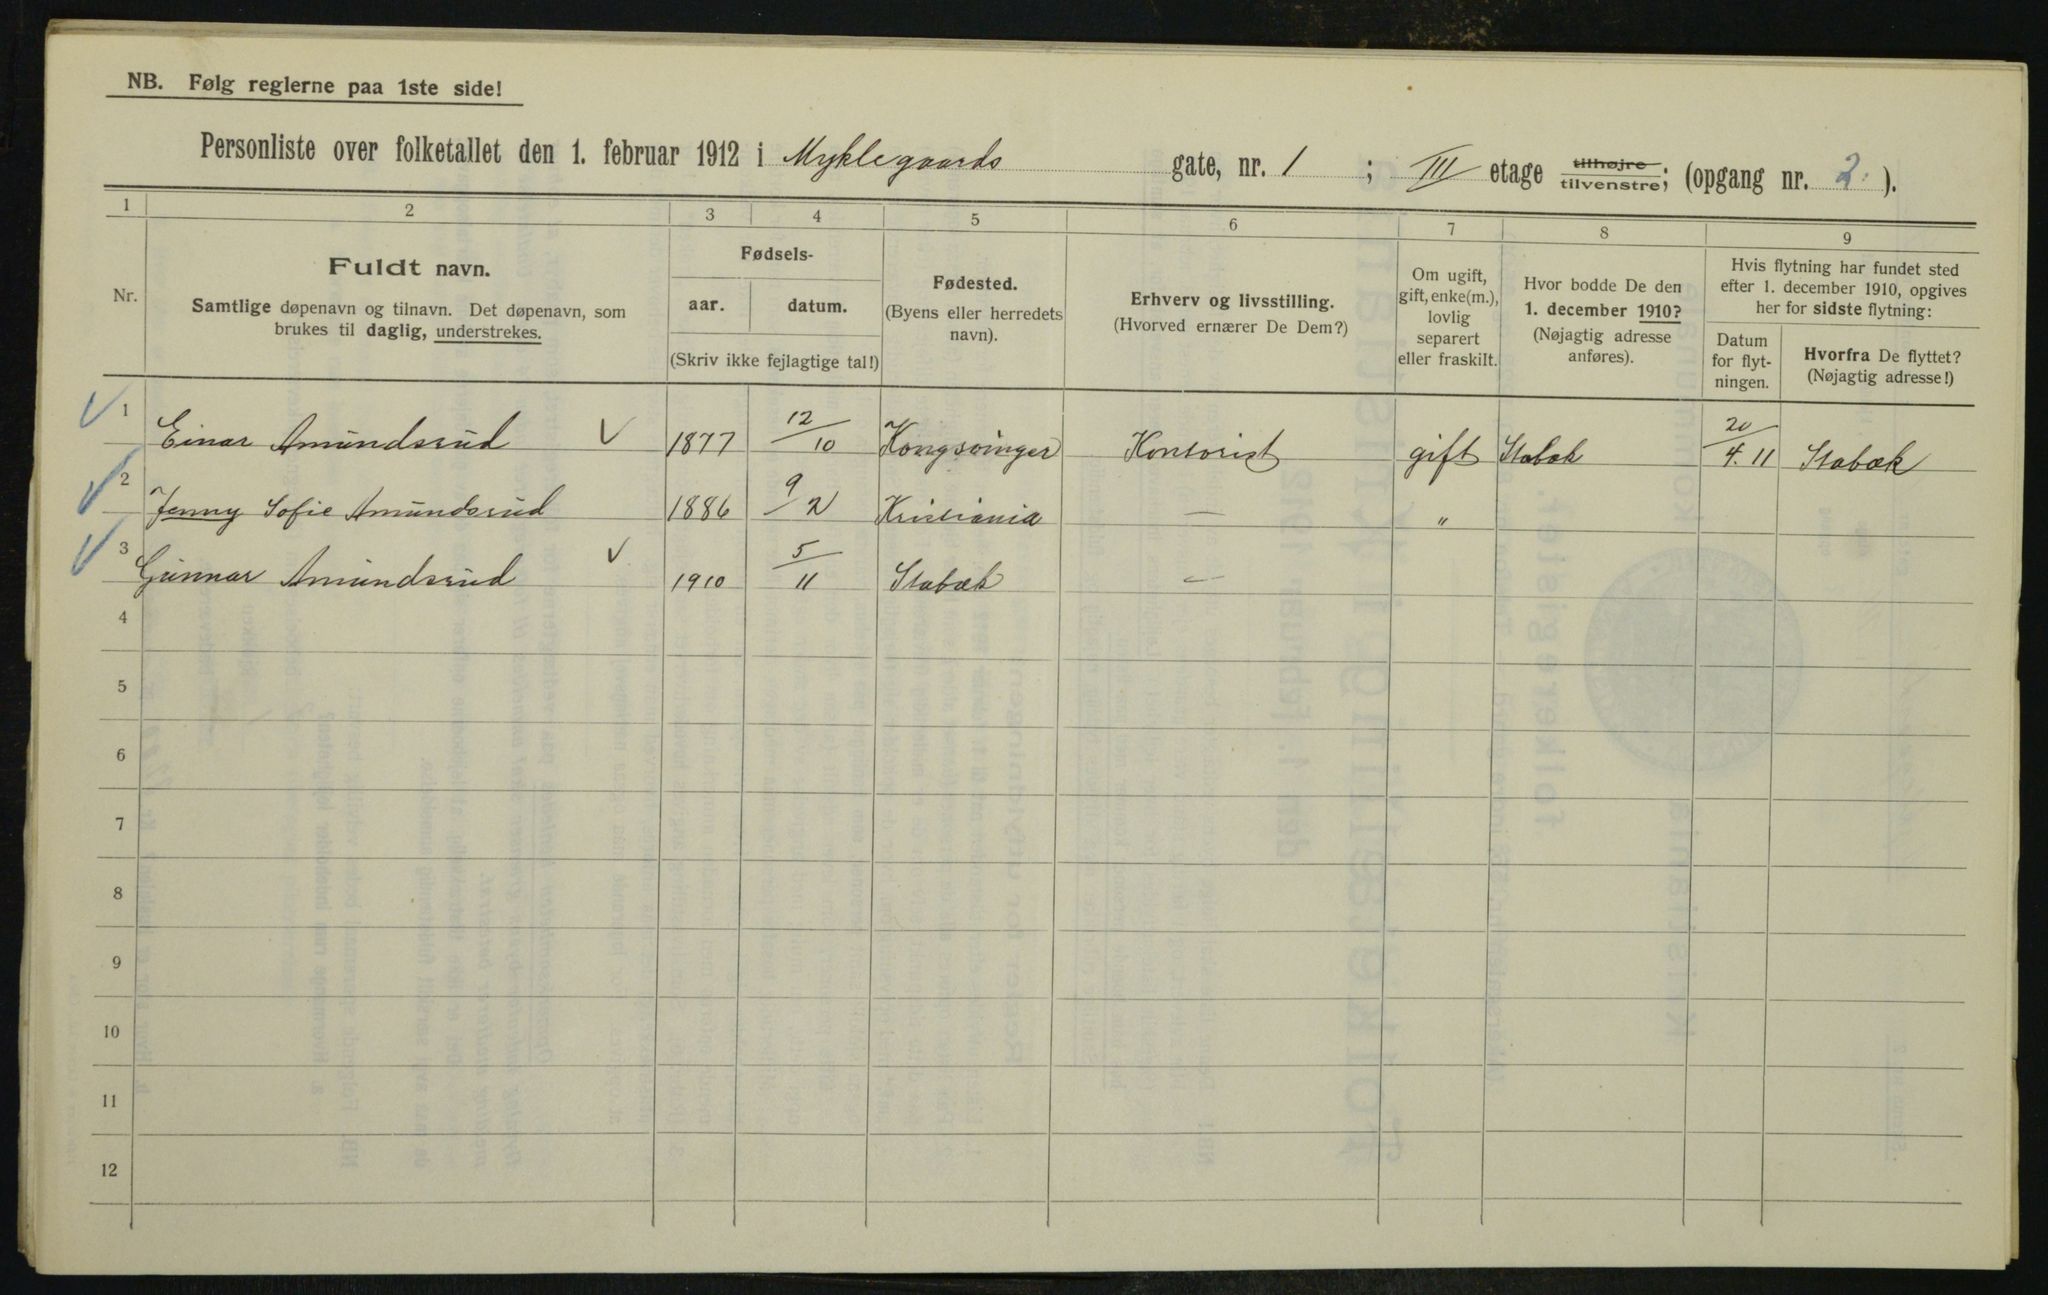 NB. Følg reglerne paa 1ste side!
Personliste over folketallet den 1. februar 1912 i Myklegaards gate, nr. 1 ; III etage tilhøjre tilvenstre; (opgang nr. 2 ).
1 2 3 4 5 6 7 8 9
Nr.
Fuldt navn.
Samtlige døpenavn og tilnavn. Det døpenavn, som
brukes til daglig, understrekes.
Fødsels-
aar. datum.
(Skriv ikke fejlagtige tal!)
Fødested.
(Byens eller herredets
navn).
Erhverv og livsstilling.
(Hvorved ernærer De Dem?)
Om ugift,
gift, enke(m.),
lovlig
separert
eller fraskilt.
Hvor bodde De den
1. december 1910?
(Nøjagtig adresse
anføres).
Hvis flytning har fundet sted
efter 1. december 1910, opgives
her for sidste flytning:
Datum
for flyt-
ningen.
Hvorfra De flyttet?
(Nøjagtig adresse!)
1 Einar Amundsrud 1877 12/10 Kongsvinger Kontorist gift Stabæk 20/4. 11 Stabæk
2 Jenny Sofie Amundsrud 1886 9/2 Kristiania — "
3 Gunnar Amundsrud 1910 5/11 Stabæk —
4
5
6
7
8
9
10
11
12